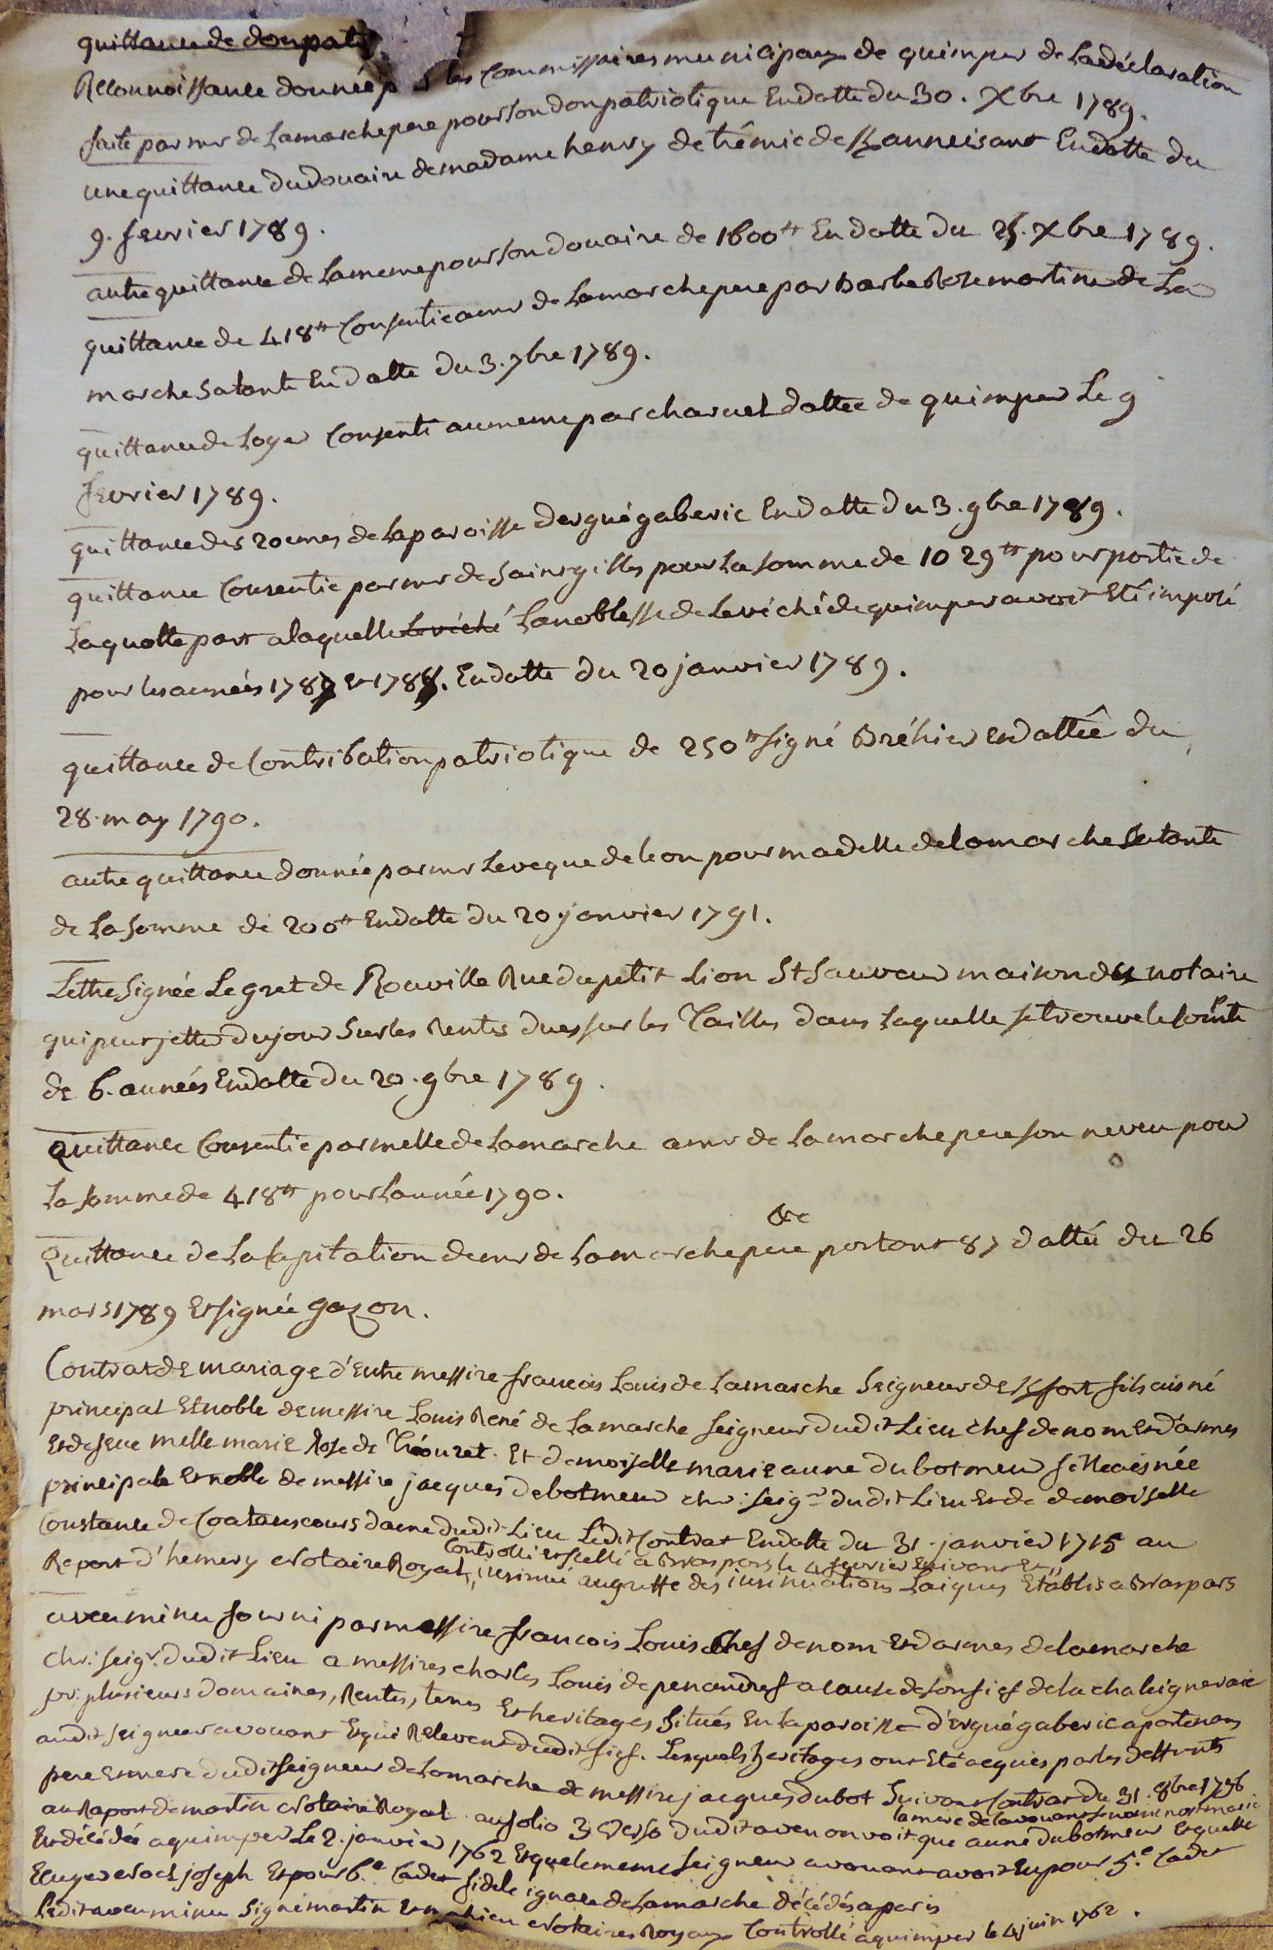 quittance de don patr
Reconnoissance donnée p les commissaires municipaux de quimper de La déclaration
faite par mr de Lamarche pere pour son don patriotique En datte du 30. Xbre 1789.
une quittance du douaire de madame henry de trémic de Kanneisant En datte du
9. fevrier 1789.
autre quittance de La meme pour son douaire de 1600tt En datte du 25. Xbre 1789.
quittance de 418tt Consentie a mr de Lamarche pere par Barbe Rose martine de La
marche sa tante En datte du 3. 7bre 1789.
quittance de Loyer Consenti au meme par charuel dattée de quimper Le 9
fevrier 1789.
quittance des 20emes de La paroisse dergué gaberic En datte du 3. 9bre 1789.
quittance Consentie par mr de Saint gilles pour La somme de 1029tt pour partie de
La quotte part a laquelle Levéché La noblesse de Levéché de quimper avoit Eté imposé
pour les années 1787 et 1788. En datte du 20 janvier 1789.
quittance de Contribution patriotique de 250tt signé Bréhier en dattée du
28. may 1790.
autre quittance donnée par mr Leveque de leon pour madelle de lamarche sa tante
de La somme de 200tt En datte du 20 janvier 1791.
Lettre Signée Legret de Rouville Rue du petit Lion St Sauveur maison du notaire
qui peur jetter du jour sur les Rentes dues sur les Tailles dans Laquelle se trouve le compte
de 6. années En datte du 20. 9bre 1789.
Quittance Consentie par melle de Lamarche a mr de Lamarche pere son neveu pour
La somme de 418tt pour Lannée 1790.
&c
Quittance de La Capitation de mr de Lamarche pere portant 87 dattée du 26
mars 1789 Et signée gazon.
Contrat de mariage d'Entre messire francois Louis de Lamarche Seigneur de Kfort fils aisné
principal Et noble de messire Louis René de Lamarche seigneur du dit Lieu chef de nom et d'armes
et de feue melle marie Rose de Tréouret. Et demoiselle marie anne du botmeur fille aisnée
principale Et noble de messire jacques du botmeur chr. seigr du dit Lieu et de demoiselle
Constance de Coatanscours dame du dit Lieu Ledit Contrat En datte du 31. janvier 1715 au
Controllé et scellé a Braspars le 4 fevrier suivant et
Raport d'hemery Notaire Royal, insinué au greffe des insinuations Laiques Etablis a Braspars
aveu minu fourni par messire francois Louis chef de nom et d'armes de lamarche
chr. seigr. du dit Lieu a messires charles Louis de penandref a cause de son fief de La chataigneraie
pr. plusieurs domaines, Rentes, terres Et heritages situés En La paroisse d'ergué gaberic apartenans
audit seigneur avouant Et qui Relevent dudit fief. Lesquels heritages ont Eté acquis par les deffunts
pere et mere dudit seigneur de Lamarche de messire jacques dubot Suivant Contrat du 31. 8bre 1736
au Raport de martin Notaire Royal. au folio 3 verso dudit aveu on voit que anne du botmeur
la mere de lavouant se nomme marie Et quelle
Est décédée a quimper Le 2. janvier 1762 Et que le meme seigneur avouant avoit Eu pour 5.e Cadet
Ecuyer Noel joseph Et pour 6.e Cadet fidele ignace de Lamarche décédés a paris
Ledit aveu minu signé martin et mahieu Notaires Royaux Controllé a quimper le 4 juin 1762.